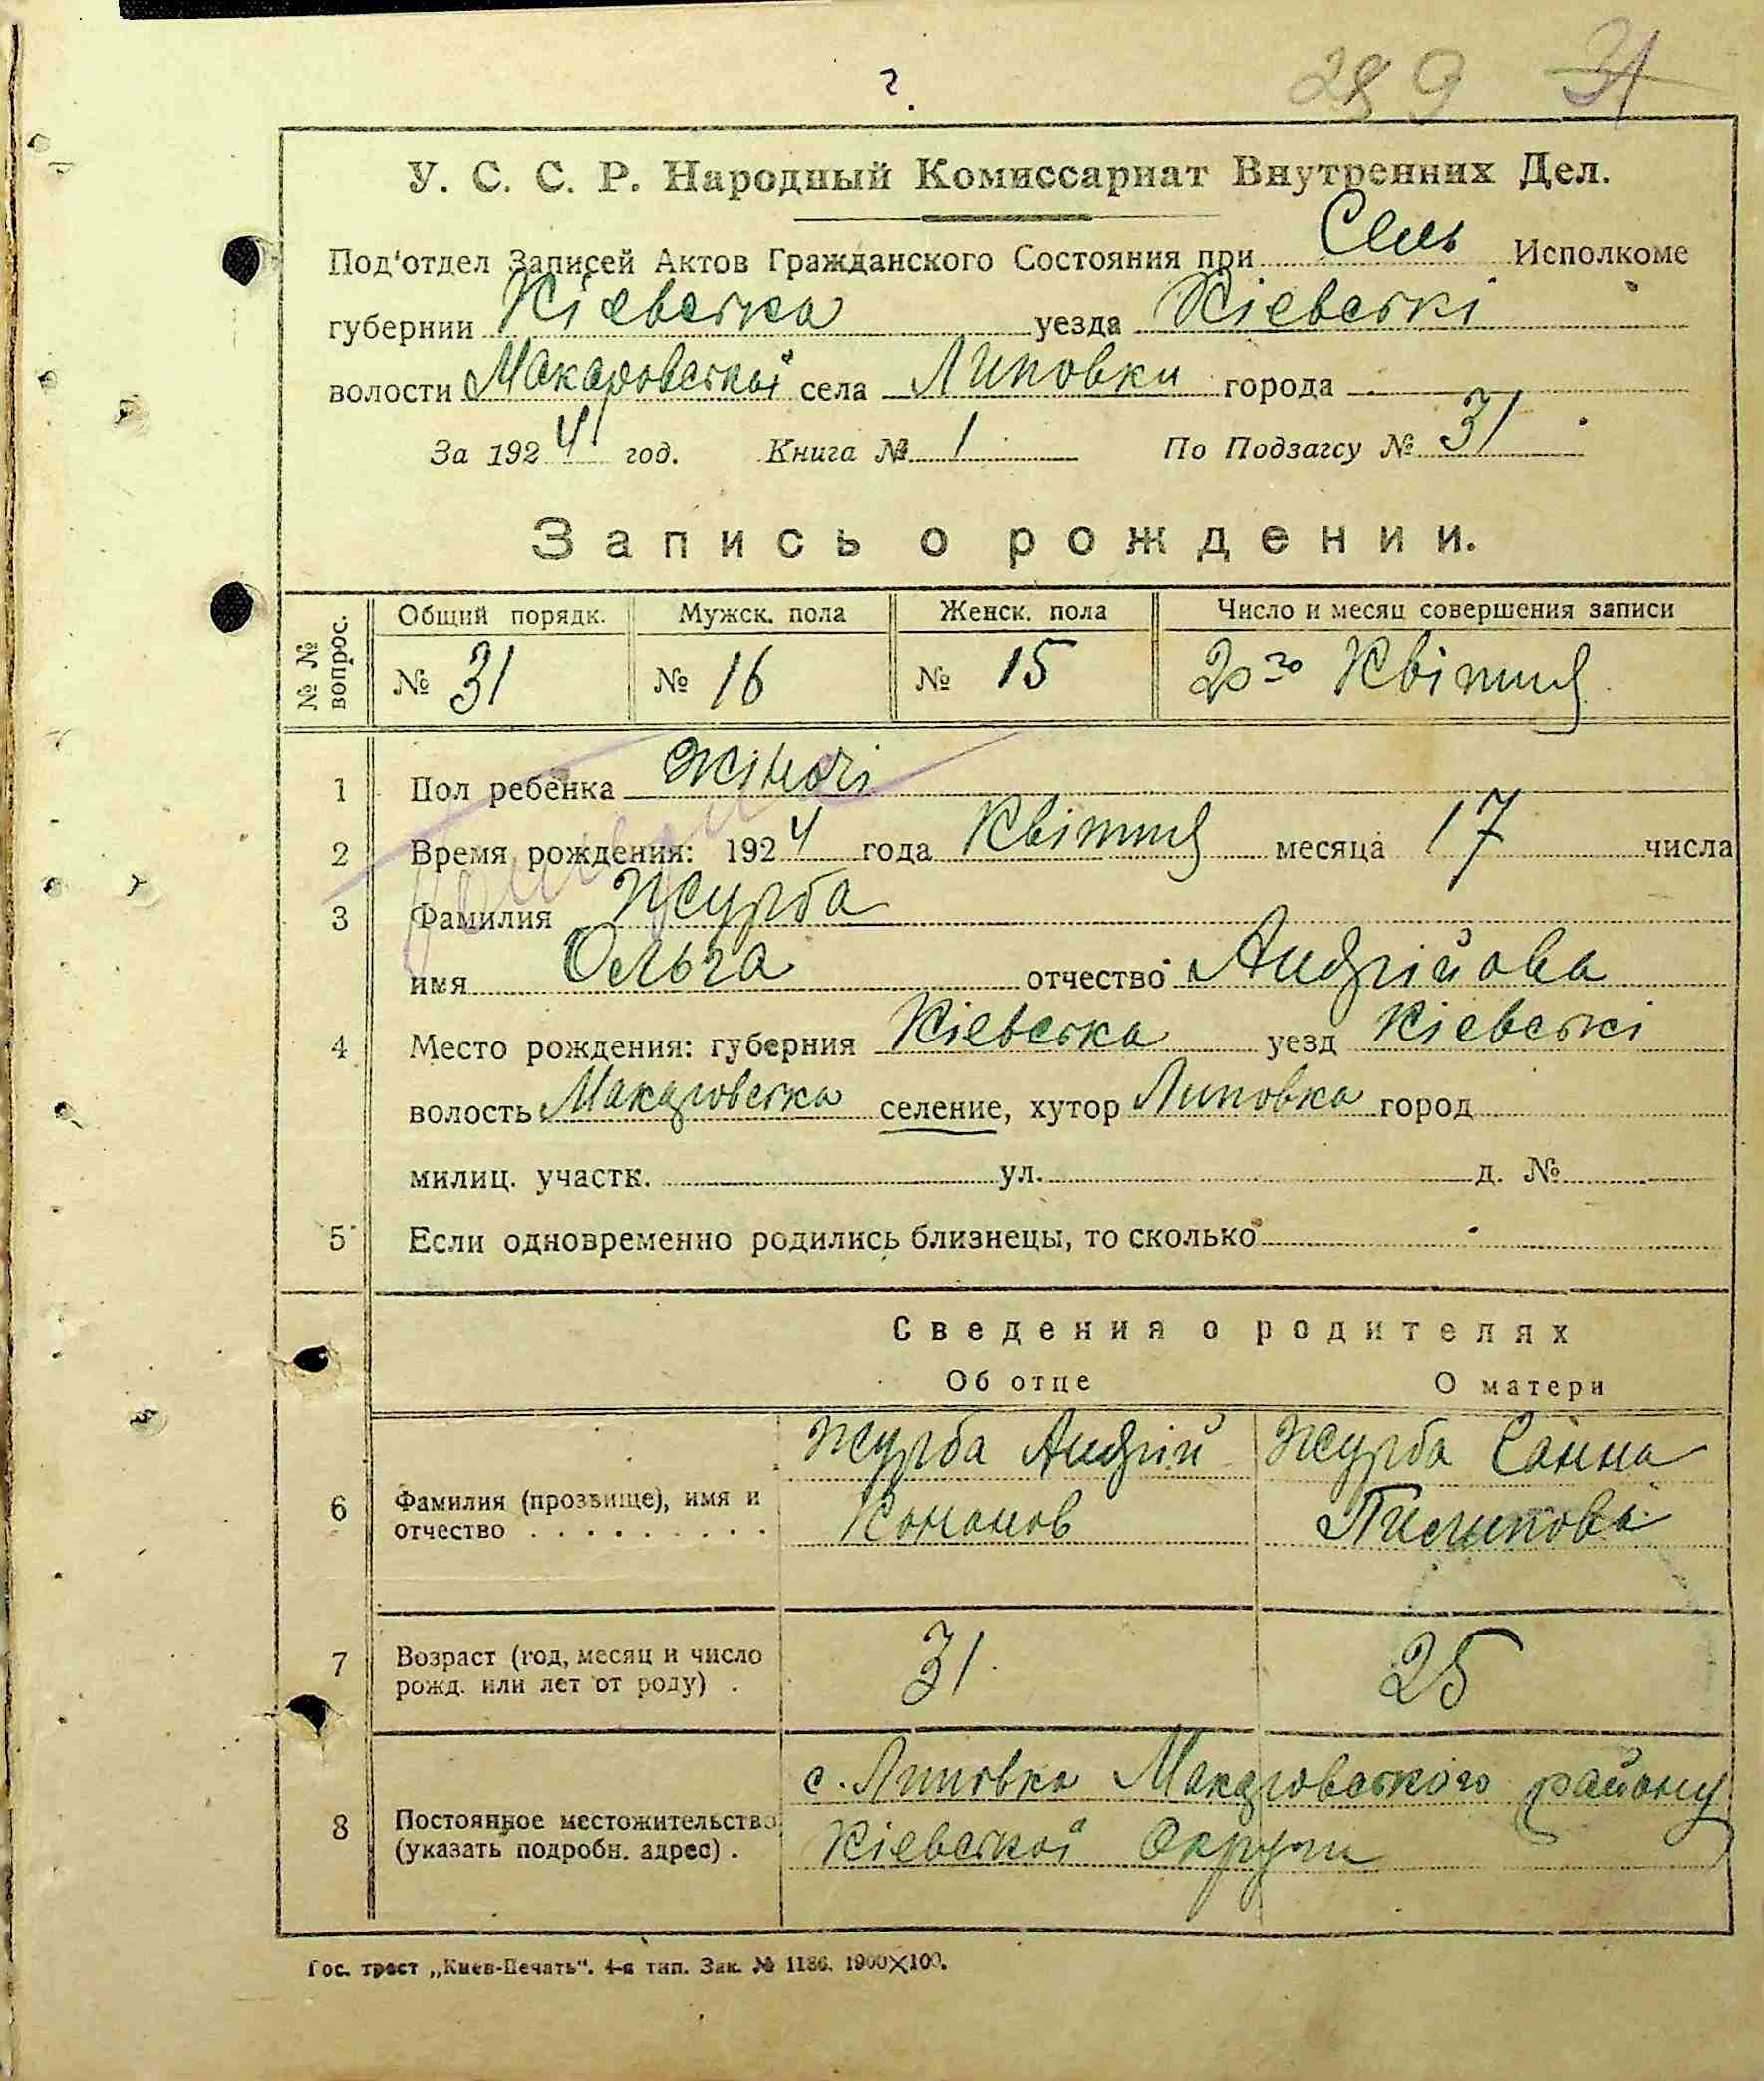 г.
289 31
У. С. С. Р. Народный Комиссариат Внутренних Дел.
Под'отдел Записей Актов Гражданского Состояния при Сель Исполкоме
губернии Кіевська уезда Кіевскі
волости Макаровської села Липовки города
За 1924 год. Книга № 1 По Подзагсу № 31
Запись о рождении.
№ № вопрос. Общий порядк. Мужск. пола Женск. пола Число и месяц совершения записи
№ 31 № 16 № 15 20го Квітня
1 Пол ребенка жіночі
2 Время рождения: 1924 года Квітня месяца 17 числа
3 Фамилия Журба
имя Ольга отчество Андрійова
4 Место рождения: губерния Кіевська уезд Кіевскі
волость Макаровська селение, хутор Липовка город
милиц. участк. ул. д. №
5 Если одновременно родились близнецы, то сколько
Сведения о родителях
Об отце О матери
Журба Андрій Журба Ганна
6 Фамилия (прозвище), имя и
отчество . . . . . . . . . . Кононов Пилипова
7 Возраст (год, месяц и число
рожд. или лет от роду) . 31 25
с. Липовка Макаровського району
8 Постоянное местожительство
(указать подробн. адрес) . Кіевської Округи
Гос. трест „Киев-Печать“. 4-я тип. Зак. № 1186. 1900×100.